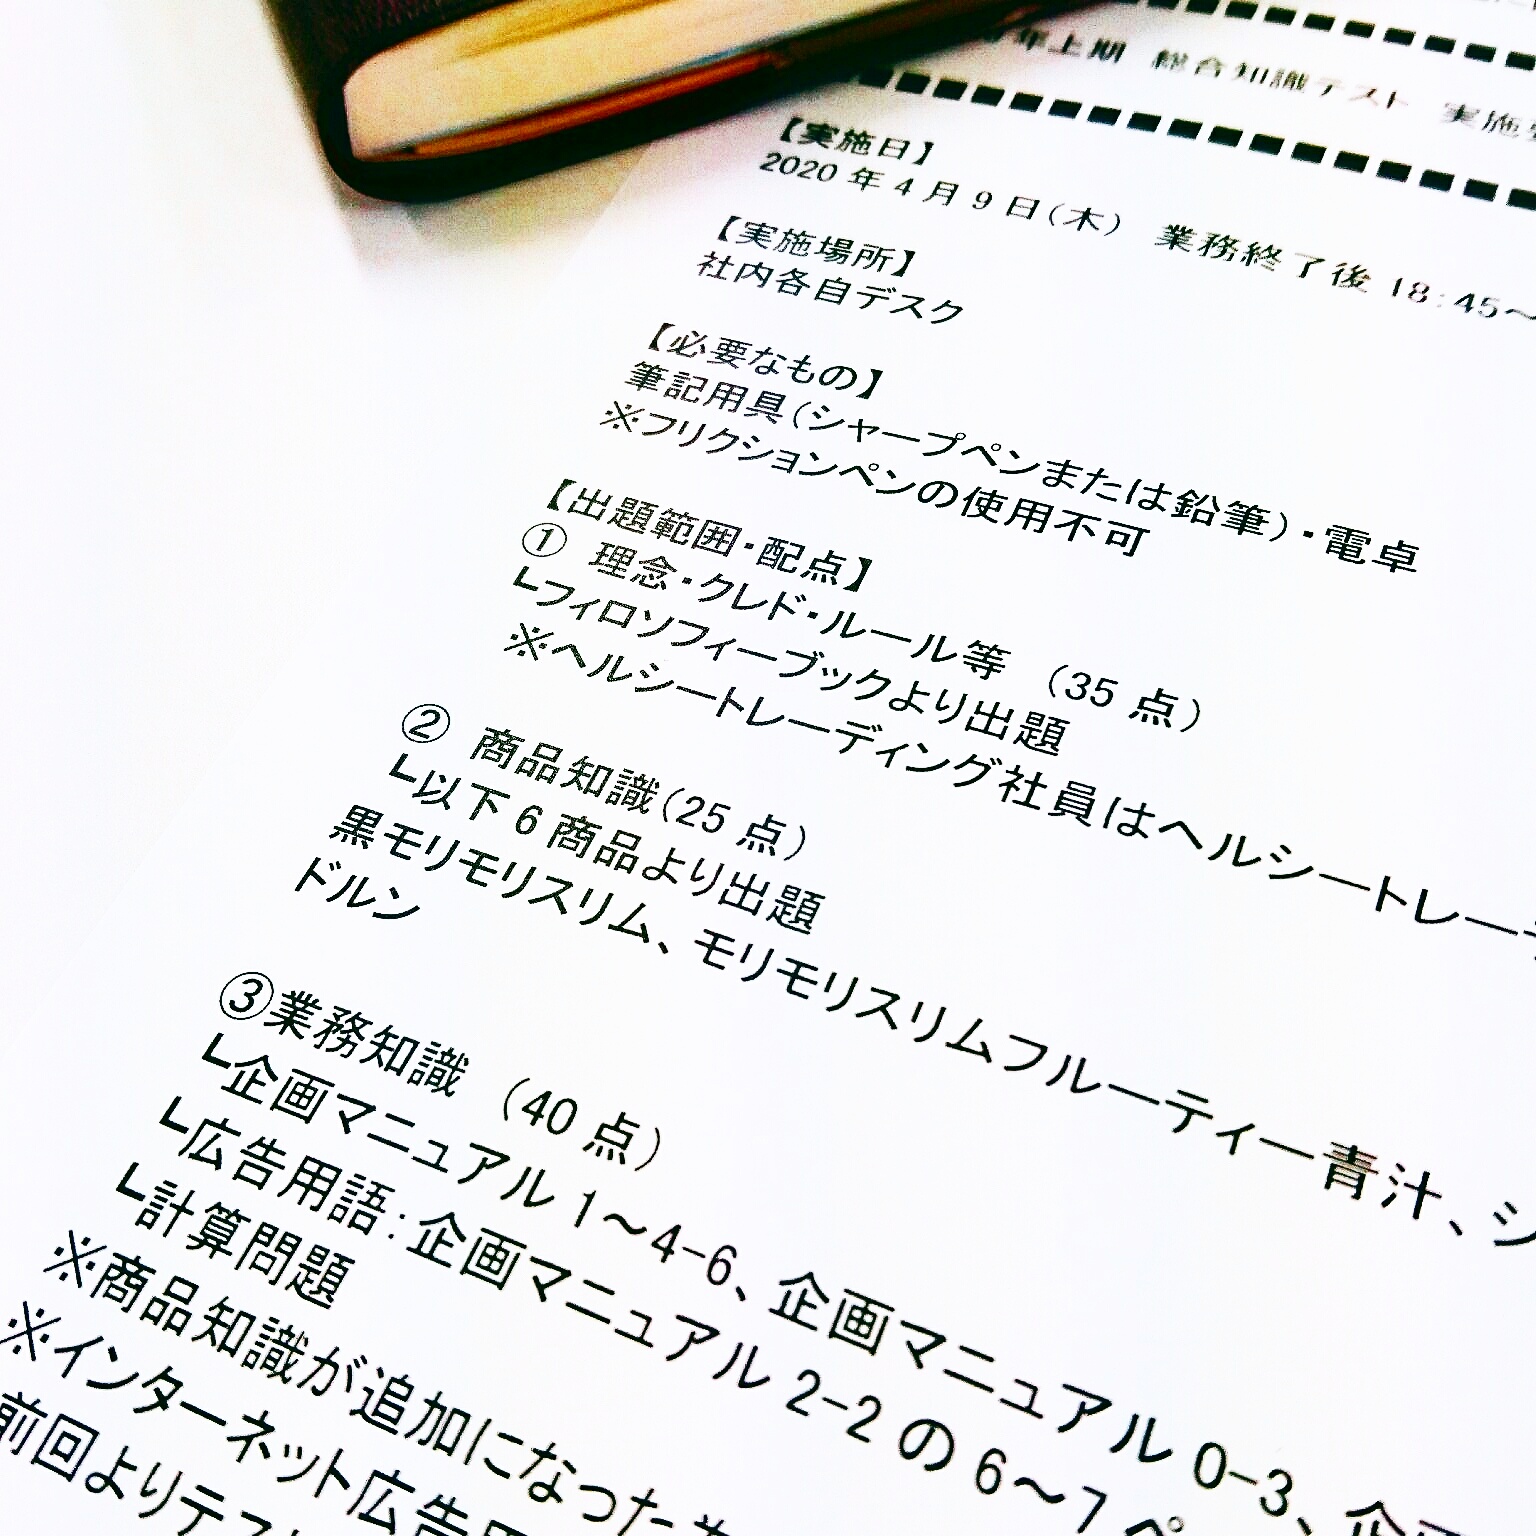 年上期 総合知識テスト 実施
【実施日】
2020年4月9日(木) 業務終了後 18:45～
【実施場所】
社内各自デスク
【必要なもの】
筆記用具(シャープペンまたは鉛筆)・電卓
※フリクションペンの使用不可
【出題範囲・配点】
① 理念・クレド・ルール等 (35点)
┗フィロソフィーブックより出題
※ヘルシートレーディング社員はヘルシートレー
② 商品知識(25点)
┗以下6商品より出題
黒モリモリスリム、モリモリスリムフルーティー青汁、シ
ドルン
③業務知識 (40点)
┗企画マニュアル1～4-6、企画マニュアル0-3、企
┗広告用語:企画マニュアル2-2の6～7ペ
┗計算問題
※商品知識が追加になった
※インターネット広告用
前回よりテスト